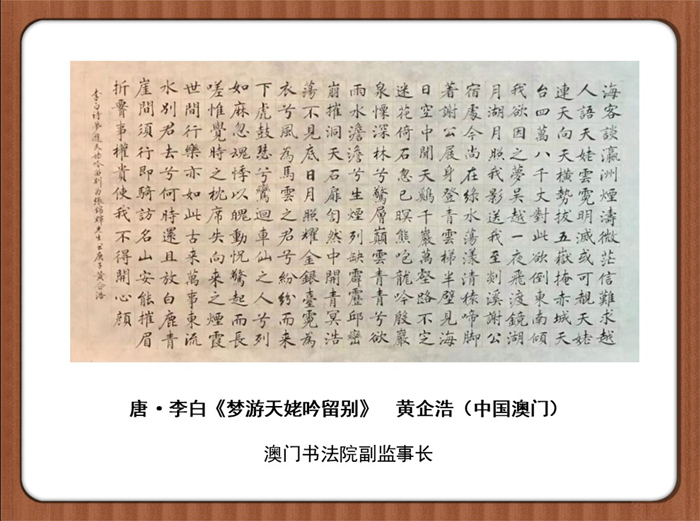 海客談瀛洲煙濤微茫信難求越
人語天姥雲霓明滅或可覩天姥
連天向天橫勢拔五嶽掩赤城天
台四萬八千丈對此欲倒東南傾
我欲因之夢吳越一夜飛渡鏡湖
月湖月照我影送我至剡溪謝公
宿處今尚在綠水蕩漾清猿啼脚
著謝公屐身登青雲梯半壁見海
日空中聞天鷄千巖萬壑路不定
迷花倚石忽已暝熊咆龍吟殷巖
泉慄深林兮驚層巔雲青青兮欲
雨水澹澹兮生煙列缺霹靂邱巒
崩摧洞天石扉訇然中開青冥浩
蕩不見底日月照耀金銀臺霓為
衣兮風為馬雲之君兮紛紛而来
下虎鼓瑟兮鸞迴車仙之人兮列
如麻忽魂悸以魄動怳驚起而長
嗟惟覺時之枕席失向来之煙霞
世間行樂亦如此古来萬事東流
水別君去兮何時還且放白鹿青
崖間須行即騎訪名山安能摧眉
折腰事權貴使我不得開心顏
李白詩夢遊天姥吟留別 庚子黃企浩
唐·李白《梦游天姥吟留别》 黄企浩（中国澳门）
澳门书法院副监事长